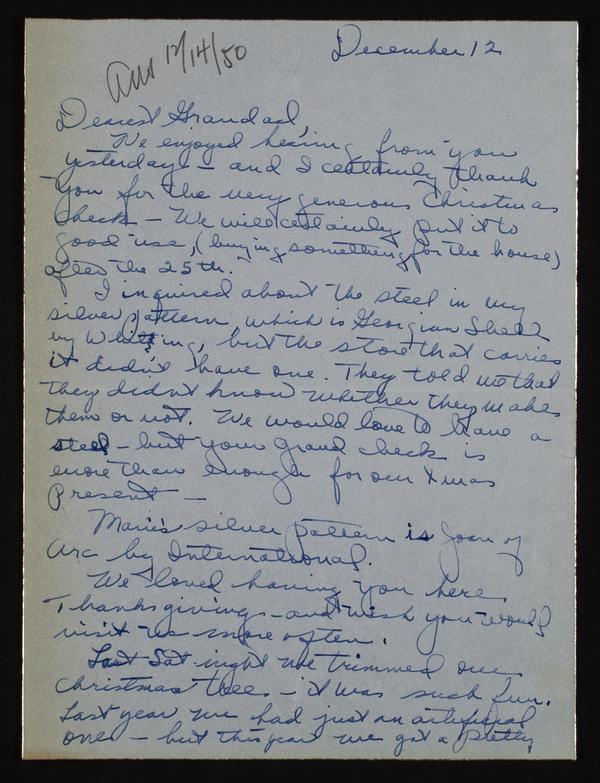 Ans 12/14/50
December 12
Dearest Grandad,
We enjoyed hearing from you
yesterday — and I certainly thank
you for the very generous Christmas
check — We will certainly put it to
good use, (buying something for the house)
after the 25th.
I inquired about the steel in my
silver pattern, which is Georgian Shell
by Whiting, but the store that carries
it didn't have one. They told me that
they didn't know whether they make
them or not. We would love to have a
steel — but your grand check is
more than enough for our Xmas
Present —
Marie's silver pattern is Joan of
Arc by International.
We loved having you here
Thanksgiving — and wish you would
visit us more often.
Last Sat. night we trimmed our
Christmas tree — it was such fun.
Last year we had just an artificial
one — but this year we got a pretty